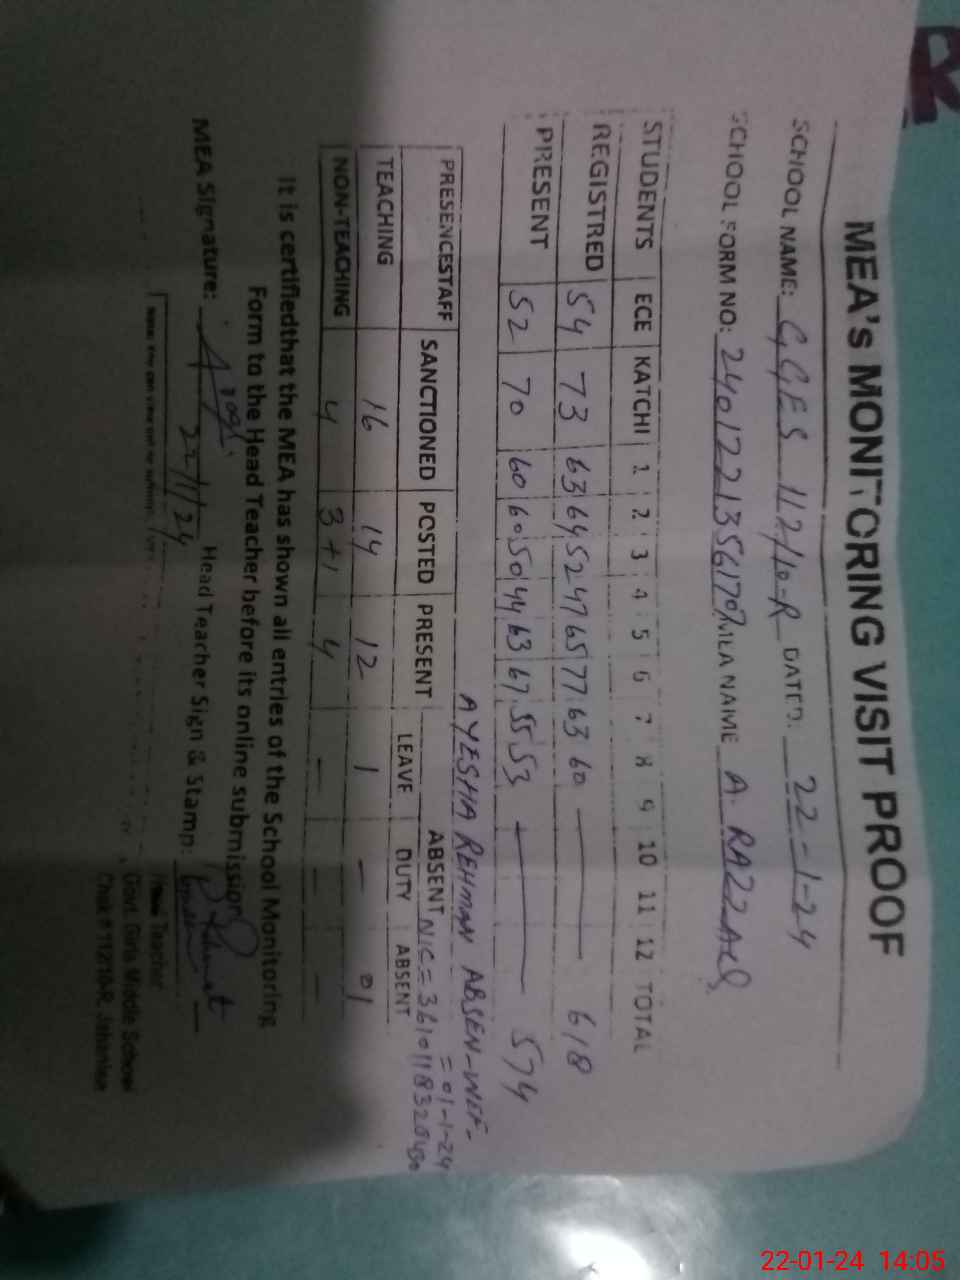 MEA's MONITORING VISIT PROOF
SCHOOL NAME: GGES 112/10-R DATED: 22-1-24
SCHOOL FORM NO: NAME A. RAZZAQ
STUDENTS ECE KATCHI 1 2 3 4 5 6 7 8 9 10 11 12 TOTAL
REGISTRED 54 73 63 64 52 47 65 77 63 60 — 618
PRESENT 52 70 60 60 50 44 63 67 55 53 — 574
AYESHA REHMAN ABSEN-WEF-
= 01-1-24
ABSENT NIC=
PRESENCESTAFF SANCTIONED POSTED PRESENT LEAVE DUTY ABSENT
TEACHING 16 14 12 1 — 01
NON-TEACHING 4 3+1 4 — — —
It is certifiedthat the MEA has shown all entries of the School Monitoring
Form to the Head Teacher before its online submission
MEA Signature: 22/1/24 Head Teacher Sign & Stamp:
Head Teacher
Govt. Girls Middle School
Chak # 112/10-R, Jahanian
22-01-24 14:05